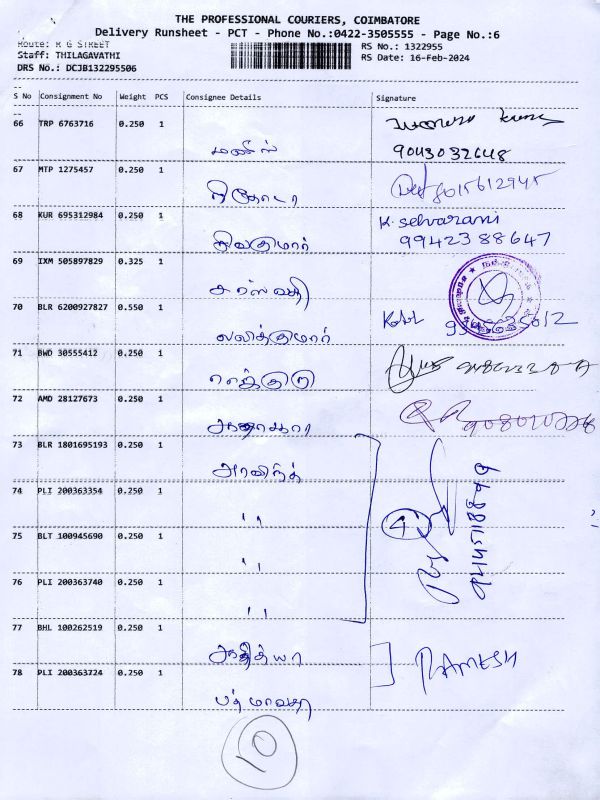 THE PROFESSIONAL COURIERS, COIMBATORE
Delivery Runsheet - PCT - Phone No.:0422-3505555 - Page No.:6
Route: R G STREET
Staff: THILAGAVATHI
DRS No.: DCJB132295506
RS No.: 1322955
RS Date: 16-Feb-2024
S No Consignment No Weight PCS Consignee Details Signature
66 TRP 6763716 0.250 1
மணிஸ் 9043032648
67 MTP 1275457 0.250 1
8015612945
68 KUR 695312984 0.250 1 K. Selvarani
சிவகுமார் 9942388647
69 IXM 505897829 0.325 1
சரஸ்வதி
70 BLR 6200927827 0.550 1
லலித்குமார்
71 BWD 30555412 0.250 1
72 AMD 28127673 0.250 1
73 BLR 1801695193 0.250 1
அரவிந்த்
74 PLI 200363354 0.250 1
" 4
75 BLT 100945690 0.250 1
"
76 PLI 200363740 0.250 1
"
77 BHL 100262519 0.250 1
RAMESH
78 PLI 200363724 0.250 1
பத்மாவதி
10